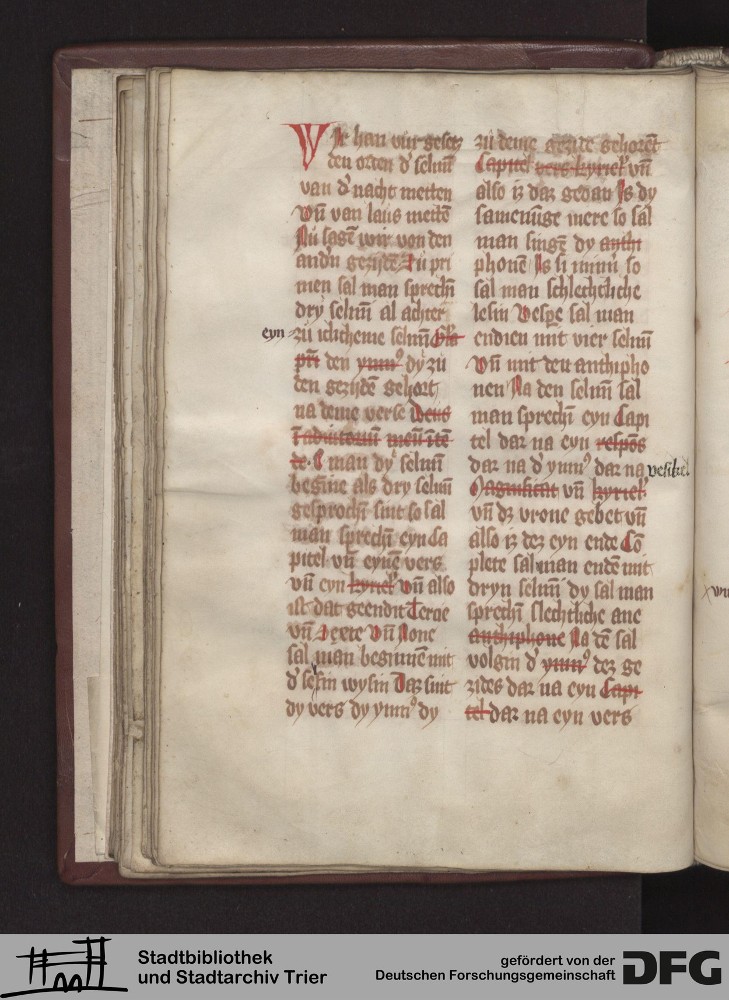 Wir han vur gesetz
den orden d' selmē
van d' nacht metten
Vn̄ van laus mettē
Nu sagē wir von den
and'n gezijdē Zu pri
men sal man sprechn̄
dry selmē al achter
eyn
zu iclicheme selmē Gl'ia
pr̄i den ymn⁹ dy zu
den gezijdē gehort
na deme verse Deus
ī adiutoriū meū ītē
de. E man dy selmē
begīne als dry selmē
gesprochn̄ sint so sal
man sprechn̄ eyn Ca
pitel vn̄ eynē vers
vn̄ eyn kyriel' Vn̄ also
ist dat geendit Tercie
vn̄ Sexte Vn̄ None
sal man beginnē mit
d' selfin wysin Daz sint
dy vers dy ymn⁹ dy
zu deme gezide gehorēt
Capitel vers kyriel' vn̄
also iz daz gedan Is dy
samenūge mere so sal
man singē dy anthi
phonē Is si minn' so
sal man schlechcliche
lesin Vesꝑe sal man
endien mit vier selmē
Vn̄ mit den anthipho
nen Na den selmē sal
man sprechn̄ eyn Capi
tel dar na eyn respōs
dar na d' ymn⁹ dar na vesikel
Magnificat vn̄ kyriel'
vn̄ dz vrone gebet vn̄
also iz dez eyn ende Cō
plete sal man endē mit
dryn selmē dy sal man
sprechn̄ slechtliche ane
anthiphone Na dē sal
volgin d' ymn⁹ dez ge
zides dar na eyn Capi
tel dar na eyn vers
Stadtbibliothek
und Stadtarchiv Trier
gefördert von der
Deutschen Forschungsgemeinschaft
DFG